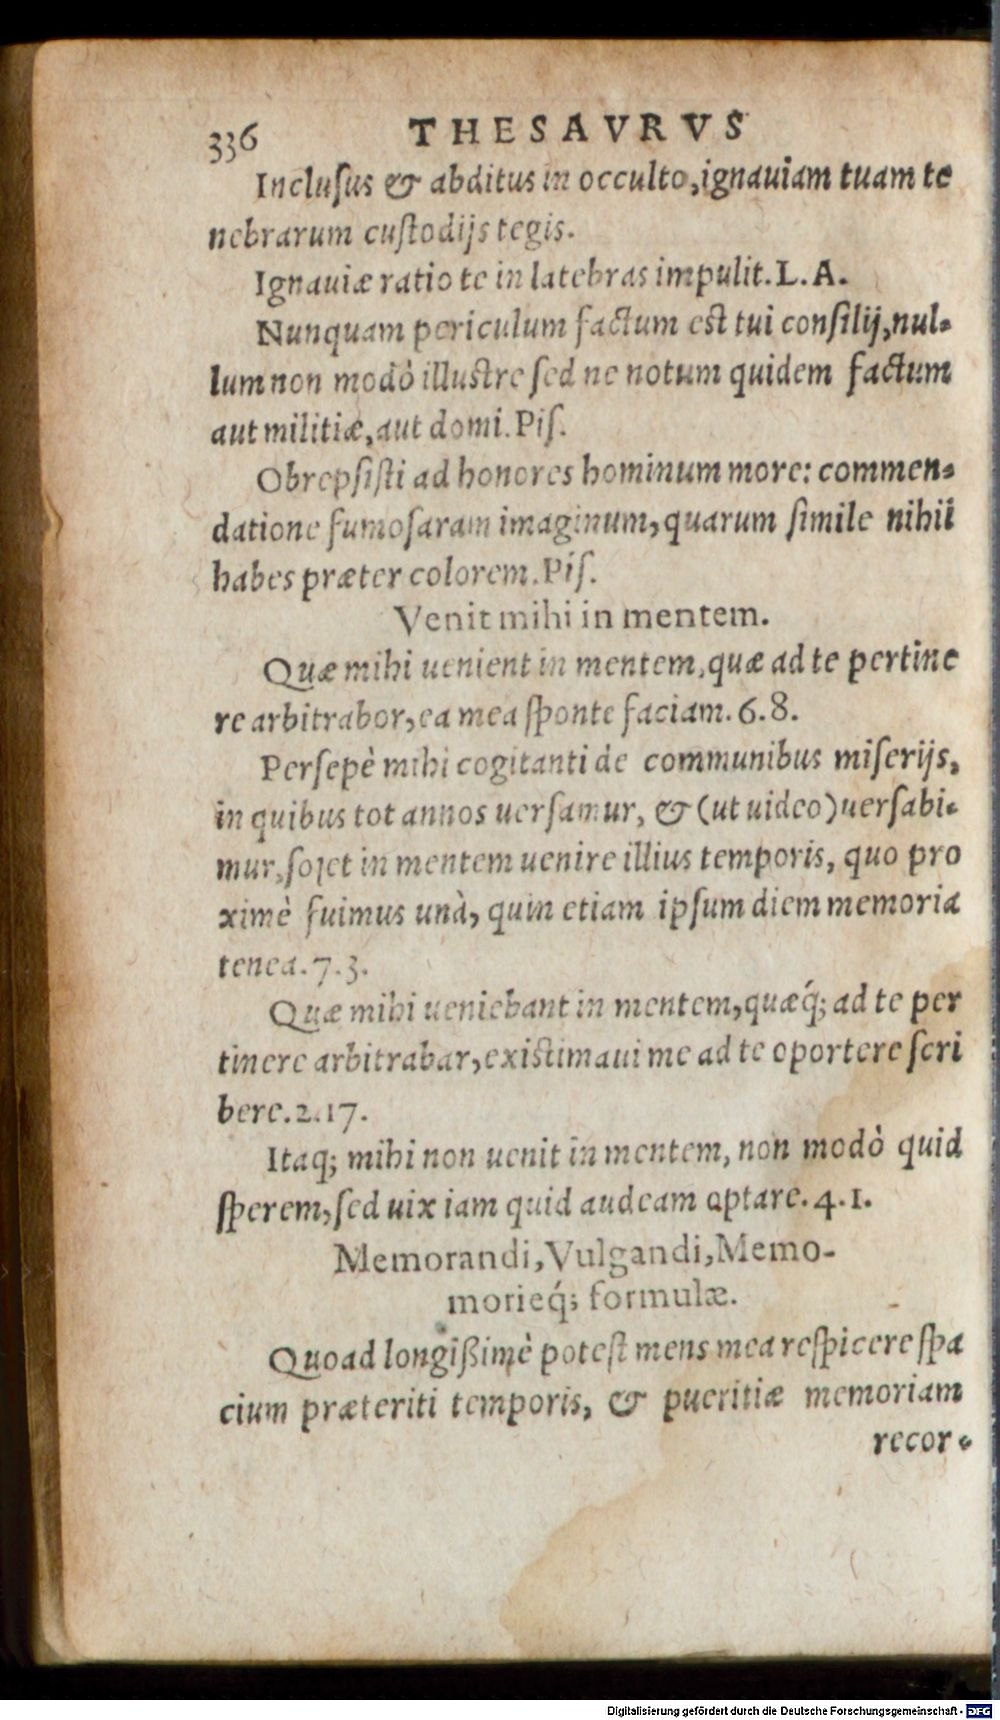 336 THESAVRVS
Incluſus & abditus in occulto, ignauiam tuam te
nebrarum cuſtodijs tegis.
Ignauiæ ratio te in latebras impulit. L. A.
Nunquam periculum factum est tui conſilij, nul-
lum non modò illustre ſed ne notum quidem factum
aut militiæ, aut domi. Piſ.
Obrepſiſti ad honores hominum more: commen-
datione fumoſaram imaginum, quarum ſimile nihil
habes præter colorem. Piſ.
Venit mihi in mentem.
Quæ mihi uenient in mentem, quæ ad te pertine
re arbitrabor, ea mea ſponte faciam. 6. 8.
Perſepè mihi cogitanti de communibus miſerijs,
in quibus tot annos uerſamur, & (ut uideo) uerſabi-
mur, ſolet in mentem uenire illius temporis, quo pro
ximè fuimus unà, quin etiam ipſum diem memoria
tenea. 7. 3.
Quæ mihi ueniebant in mentem, quæq́; ad te per
tinere arbitrabar, existimaui me ad te oportere ſcri
bere. 2. 17.
Itaq; mihi non uenit in mentem, non modò quid
ſperem, ſed uix iam quid audeam optare. 4. 1.
Memorandi, Vulgandi, Memo-
morieq́; formulæ.
Quoad longißimè poteſt mens mea reſpicere ſpa
cium præteriti temporis, & pueritiæ memoriam
recor-
Digitalisierung gefördert durch die Deutsche Forschungsgemeinschaft - DFG